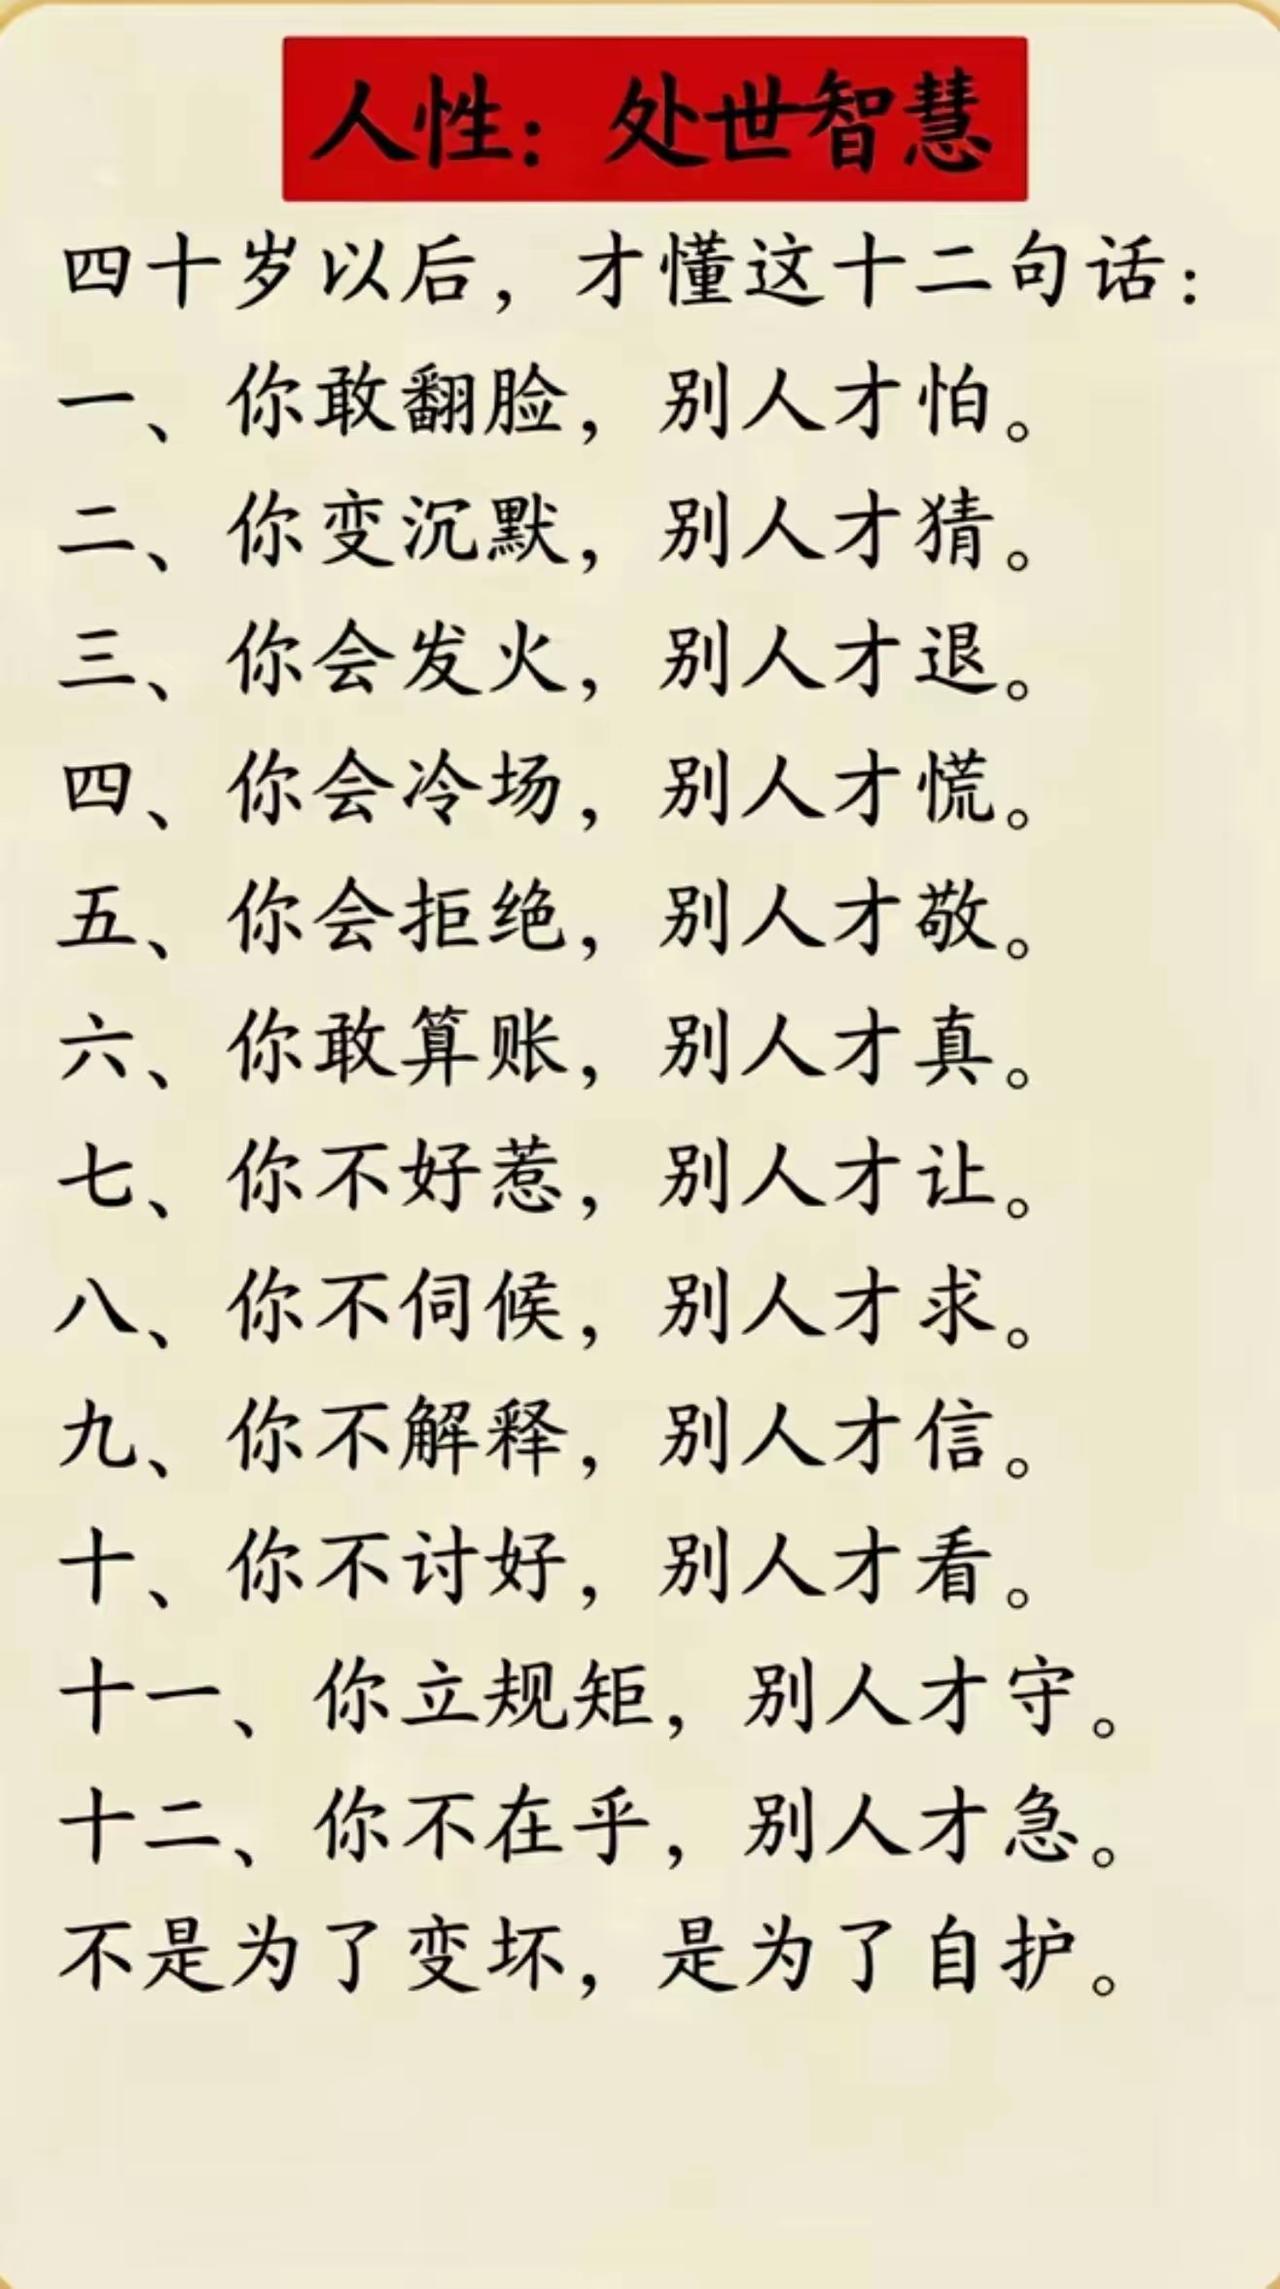 人性：处世智慧
四十岁以后，才懂这十二句话：
一、你敢翻脸，别人才怕。
二、你变沉默，别人才猜。
三、你会发火，别人才退。
四、你会冷场，别人才慌。
五、你会拒绝，别人才敬。
六、你敢算账，别人才真。
七、你不好惹，别人才让。
八、你不伺候，别人才求。
九、你不解释，别人才信。
十、你不讨好，别人才看。
十一、你立规矩，别人才守。
十二、你不在乎，别人才急。
不是为了变坏，是为了自护。